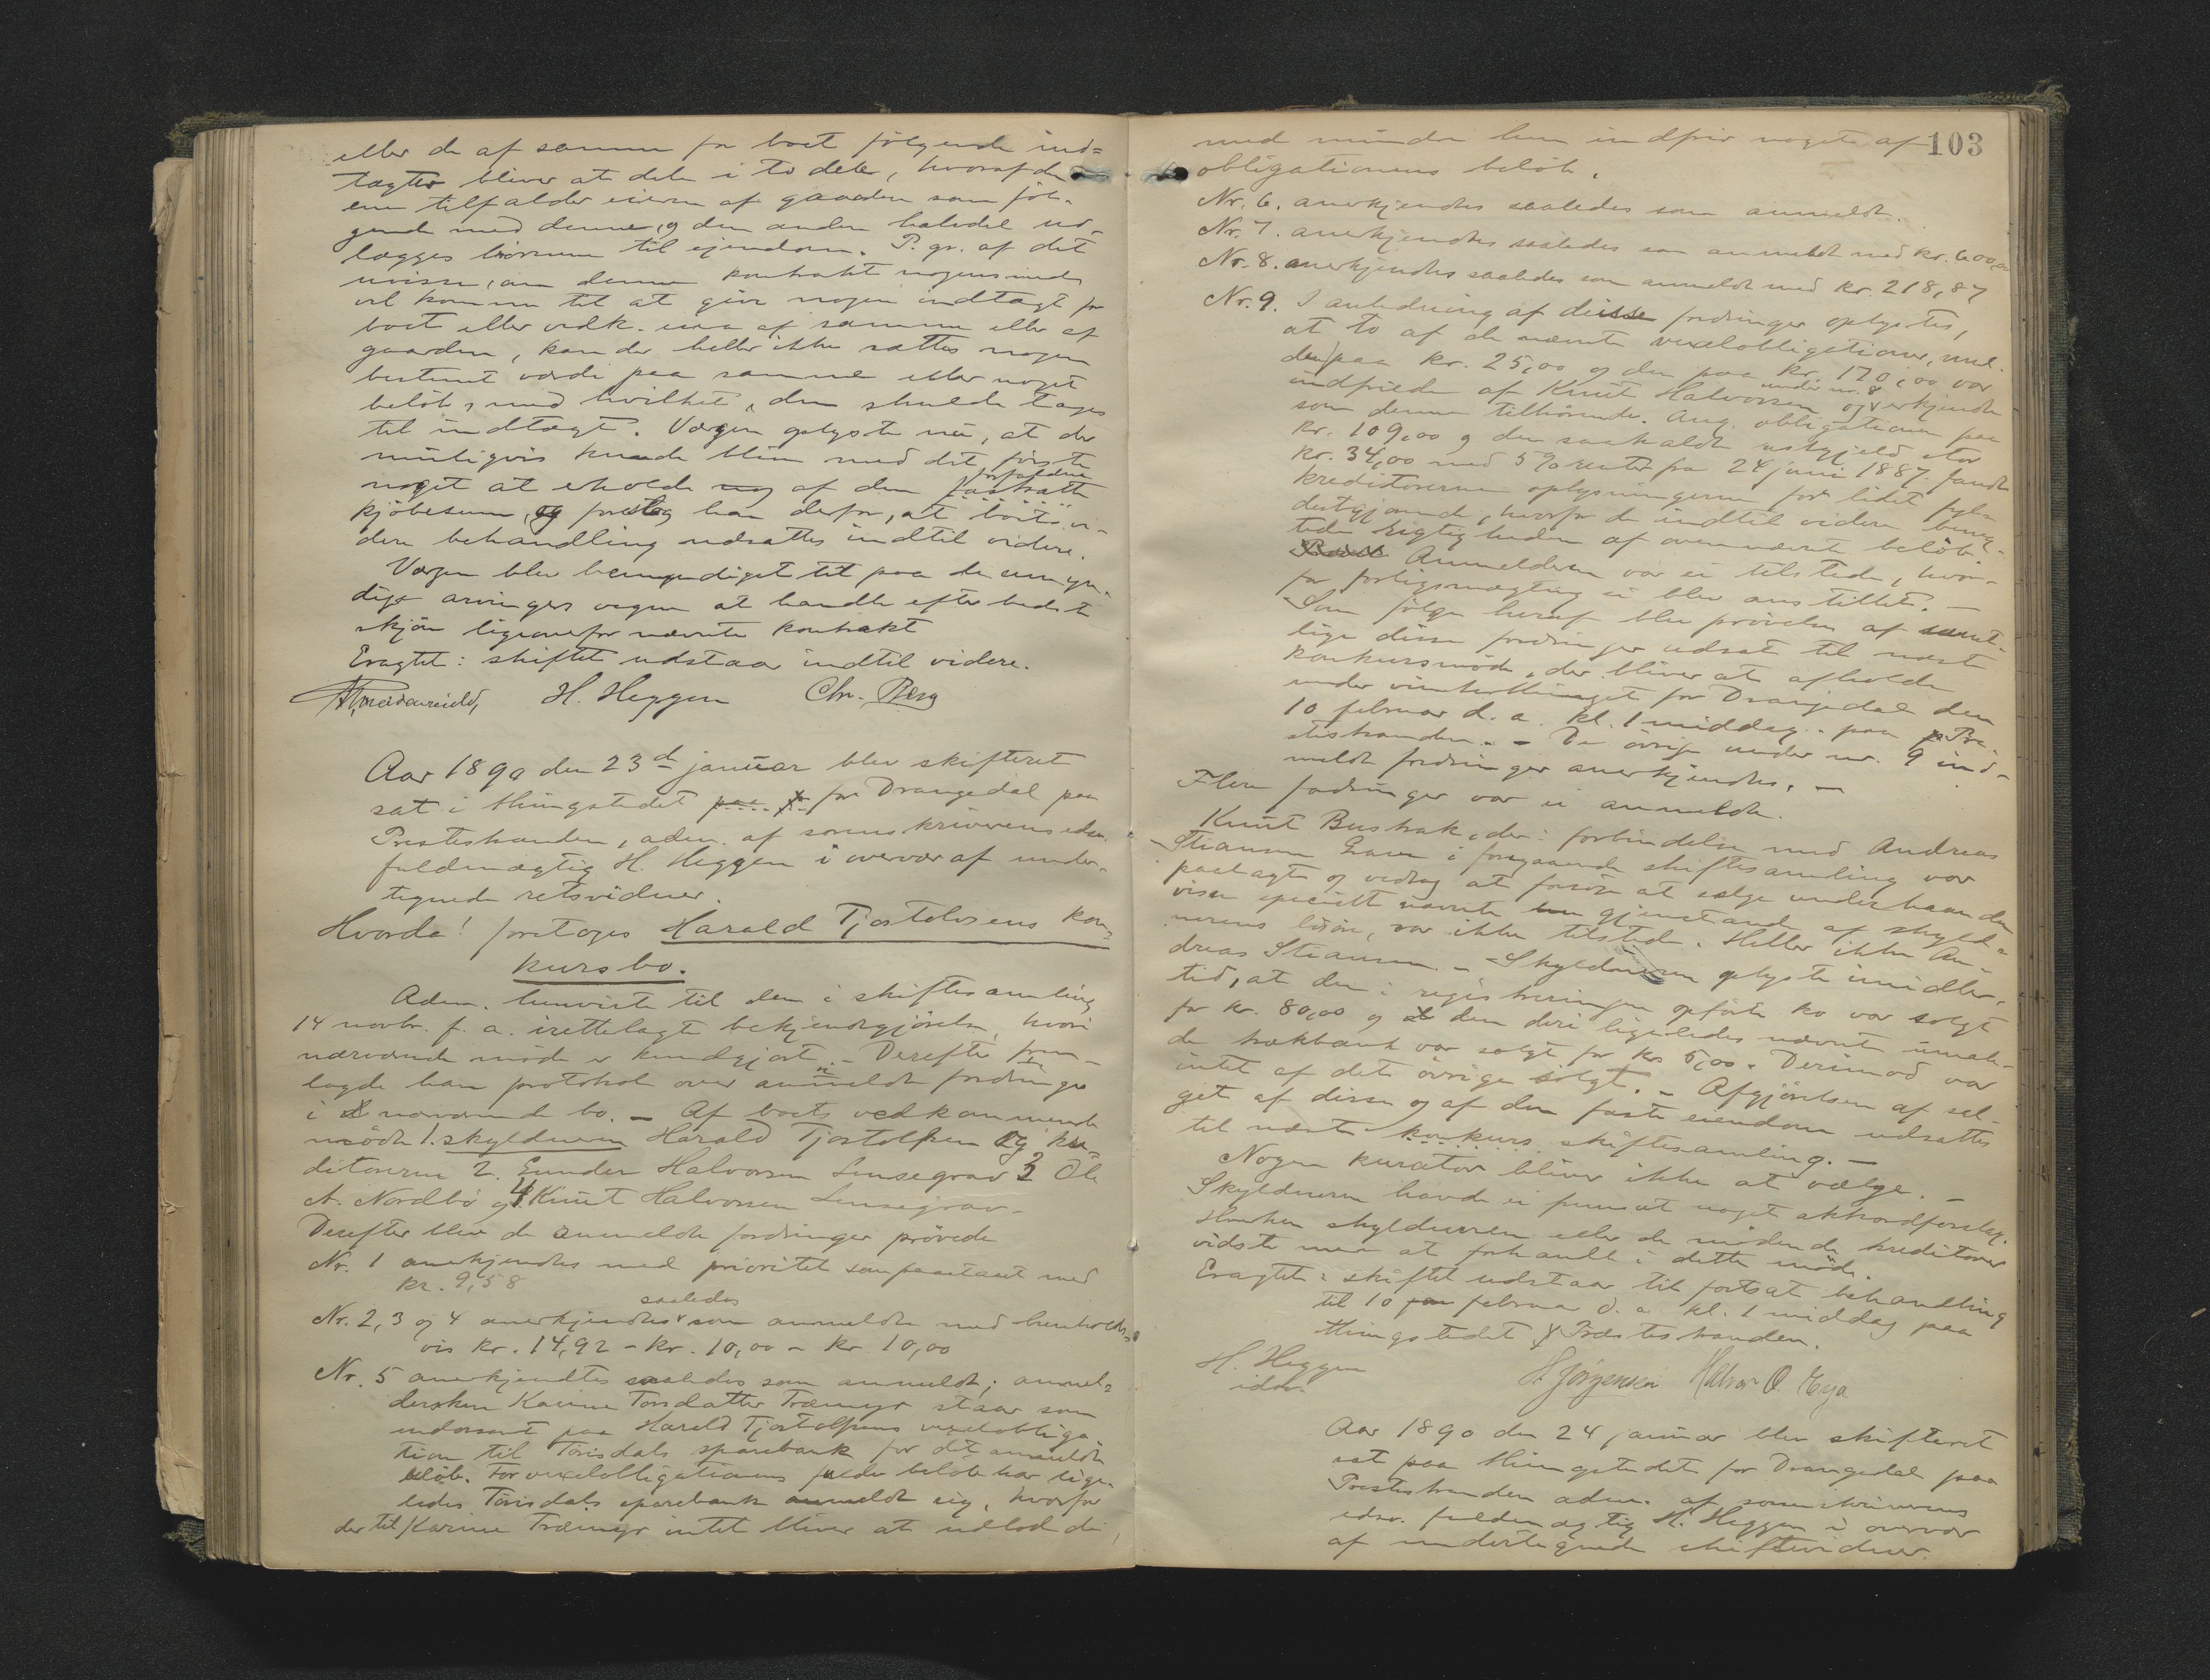 eller de af samme for boet følgende ind=
tægter bliver at dele i to dele, hvoraf den
ene tilfalder eieren af gaarden som føl-
gende med denne, og den anden halvdel ud-
lægges børnene til ejendom. P. gr. af det
uvisse, om denne kontrakt nogensinde
vil komme til at give nogen indtægt for
boet eller vedk. eiere af samme eller af
gaarden, kan der heller ikke sættes nogen
bestemt værdi paa samme eller noget
beløb, med hvilket den skulde tages
til indtægt. Værgen oplyste nu, at der
muligvis kunde blive med det første
noget at erholde af den forfaldne
kjøbesum, og foreslog han derfor, at boets vi-
dere behandling udsattes indtil videre.
Værgen blev bemyndiget til paa de umyn-
dige arvingers vegne at handle efter bedste
skjøn ligeoverfor nævnte kontrakt
Eragtet: skiftet udstaar indtil videre.
H. Heggen Chr. Berg
Aar 1890 den 23d januar blev skifteret
sat i thingstedet paa for Drangedal paa
Prestestranden, adm. af sorenskriverens edsv.
fuldmægtig H. Heggen i overvær af under-
tegnede retsvidner.
Hvorda! foretoges Harald Tjostolvsens kon=
kursbo.
Adm. henviste til den i skiftesamling
14 novbr. f. a. irettelagte bekjendtgjørelse, hvori
nærværende møde er kundgjort. – Derefter frem-
lagde han protokol over anmeldte fordringer
i nærværende bo. – Af boets vedkommende
mødte 1. skyldneren Harald Tjostolfsen og kre-
ditorerne 2. Gunder Halvorsen Lensegrav 3 Ole
A. Nordbø og 4. Knut Halvorsen Lensegrav.
Derefter blev de anmeldte fordringer prøvede
Nr. 1 anerkjendtes med prioritet som paastaaet med
kr. 9,58
saaledes
Nr. 2, 3 og 4 anerkjendtes som anmeldte med henholds=
vis kr. 14,92 – kr. 10,00 – kr. 10,00
Nr. 5 anerkjendtes saaledes som anmeldt; anmel=
dersken Karine Torsdatter Træmyr staar som
endossent paa Harald Tjostolfsens vexelobliga-
tion til Tørisdals sparebank for det anmeldte
beløb. For vexelobligationens fulde beløb har lige-
ledes Tørisdals sparebank anmeldt sig, hvorfor
der til Karine Træmyr intet bliver at udlodde,
103
med mindre hun indfrir noget af
obligationens beløb.
Nr. 6. anerkjendtes saaledes som anmeldt.
Nr. 7. anerkjendtes saaledes som anmeldt med kr. 600,00
Nr. 8. anerkjendtes saaledes som anmeldt med kr. 218,87
Nr. 9. I anledning af disse fordringer oplystes,
at to af de nævnte vexelobligationer, nml.
den paa kr. 25,00 og den paa kr. 170,00 var
under nr. 8
indfriede af Knut Halvorsen og erkjendte
som denne tilhørende. Ang. obligationen paa
kr. 109,00 og den saakaldte restgjeld stor
kr. 34,00 med 5% renter fra 24 juni 1887. fandt
kreditorerne oplysningerne for lidet fyle
destgjørende, hvorfor de indtil videre beneg-
tede rigtigheden af ovennævnte beløb.
Anmelderen var ei tilstede, hvor-
for forligsmægling ei blev anstillet. –
Som følge heraf blev prøvelse af samt-
lige disse fordringer udsat til næste
konkursmøde, der bliver at afholde
under vinterthinget for Drangedal den
10 februar d. a. kl. 1 middag paa Pre-
stestranden. – De øvrige under nr. 9 ind-
meldte fordringer anerkjendtes. –
Flere fordringer var ei anmeldte.
Knut Bustrak, der i forbindelse med Andreas
Stiansen i foregaaende skiftesamling var
paalagte og vedtog at forsøge at sælge underhaanden
visse specielt nævnte gjenstande af skyld=
nerens løsøre, var ikke tilstede. Heller ikke An-
dreas Stiansen. – Skyldneren oplyste imidler-
tid, at den i registreringen opførte ko var solgt
for kr. 80,00 og den deri ligeledes nævnte umale-
de trækbænk var solgt for kr 5,00. Derimod var
intet af det øvrige solgt. – Afgjørelsen af sal-
get af disse og af den faste eiendom udsattes
til næste konkurs skiftesamling. –
Nogen kurator bliver ikke at vælge. –
Skyldneren havde ei fremsat noget akkordforslag.
Hverken skyldneren eller de mødende kreditorer
vidste mere at forhandle i dette møde.
Eragtet: skiftet udstaar til fortsat behandling
til 10 februar d. a. kl. 1 middag paa
thingstedet Prestestranden.
H. Heggen
edsv.
H Jørgensen Halvor O. Eeja
Aar 1890 den 24 januar blev skifteret
sat paa thingstedet for Drangedal paa
Prestestranden adm. af sorenskriverens
edsv. fuldmægtig H. Heggen i overvær
af undertegnede skiftevidner.